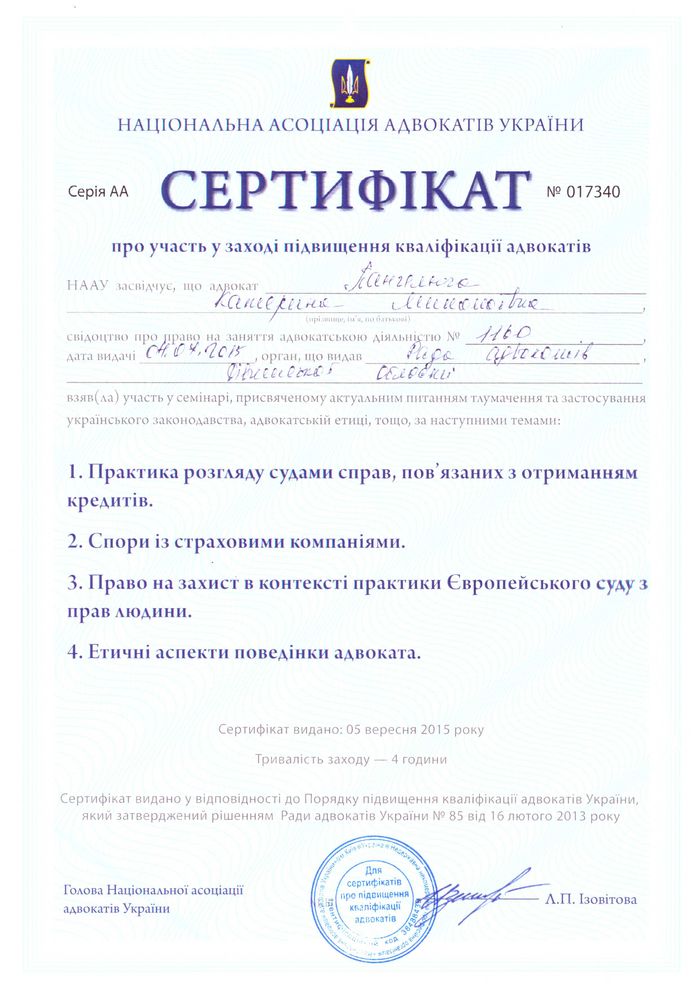 НАЦІОНАЛЬНА АСОЦІАЦІЯ АДВОКАТІВ УКРАЇНИ
Серія АА СЕРТИФІКАТ № 017340
про участь у заході підвищення кваліфікації адвокатів
НААУ засвідчує, що адвокат
Катерина Миколаївна,
(прізвище, ім'я, по батькові)
свідоцтво про право на заняття адвокатською діяльністю № 1160,
дата видачі 04.04.2015, орган, що видав Рада адвокатів
області,
взяв(ла) участь у семінарі, присвяченому актуальним питанням тлумачення та застосування
українського законодавства, адвокатській етиці, тощо, за наступними темами:
1. Практика розгляду судами справ, пов'язаних з отриманням
кредитів.
2. Спори із страховими компаніями.
3. Право на захист в контексті практики Європейського суду з
прав людини.
4. Етичні аспекти поведінки адвоката.
Сертифікат видано: 05 вересня 2015 року
Тривалість заходу — 4 години
Сертифікат видано у відповідності до Порядку підвищення кваліфікації адвокатів України,
який затверджений рішенням Ради адвокатів України № 85 від 16 лютого 2013 року
Для
сертифікатів
про підвищення
кваліфікації
адвокатів
Голова Національної асоціації
адвокатів України
Л.П. Ізовітова